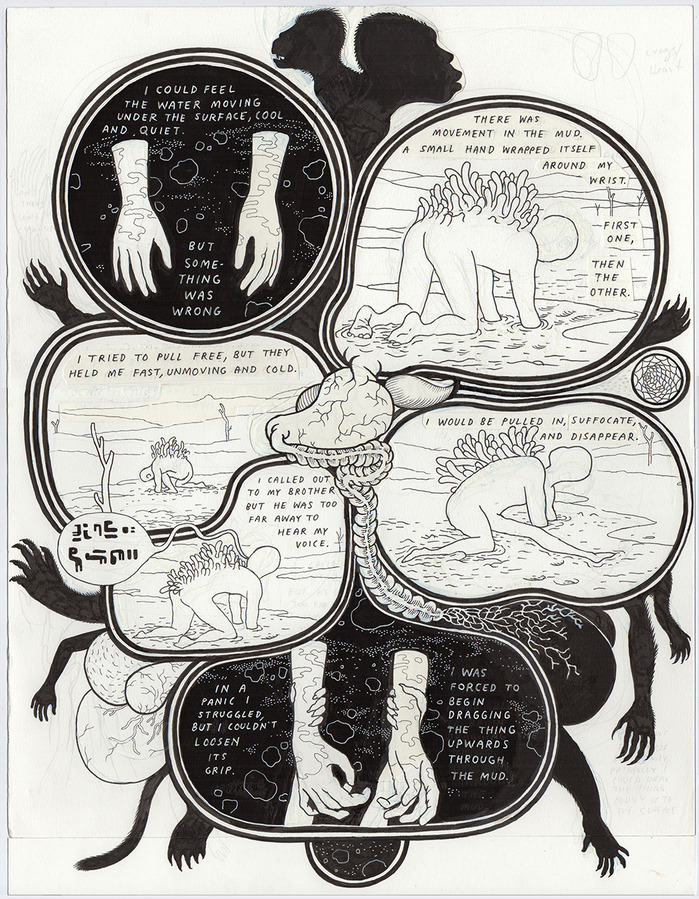 I COULD FEEL
THE WATER MOVING
UNDER THE SURFACE, COOL
AND QUIET.
BUT
SOME-
THING
WAS
WRONG
THERE WAS
MOVEMENT IN THE MUD.
A SMALL HAND WRAPPED ITSELF
AROUND MY
WRIST.
FIRST
ONE,
THEN
THE
OTHER.
I TRIED TO PULL FREE, BUT THEY
HELD ME FAST, UNMOVING AND COLD.
I WOULD BE PULLED IN, SUFFOCATE,
AND DISAPPEAR.
I CALLED OUT
TO MY BROTHER
BUT HE WAS TOO
FAR AWAY TO
HEAR MY
VOICE.
IN A
PANIC I
STRUGGLED,
BUT I COULDN'T
LOOSEN
ITS
GRIP.
I WAS
FORCED TO
BEGIN
DRAGGING
THE THING
UPWARDS
THROUGH
THE MUD.